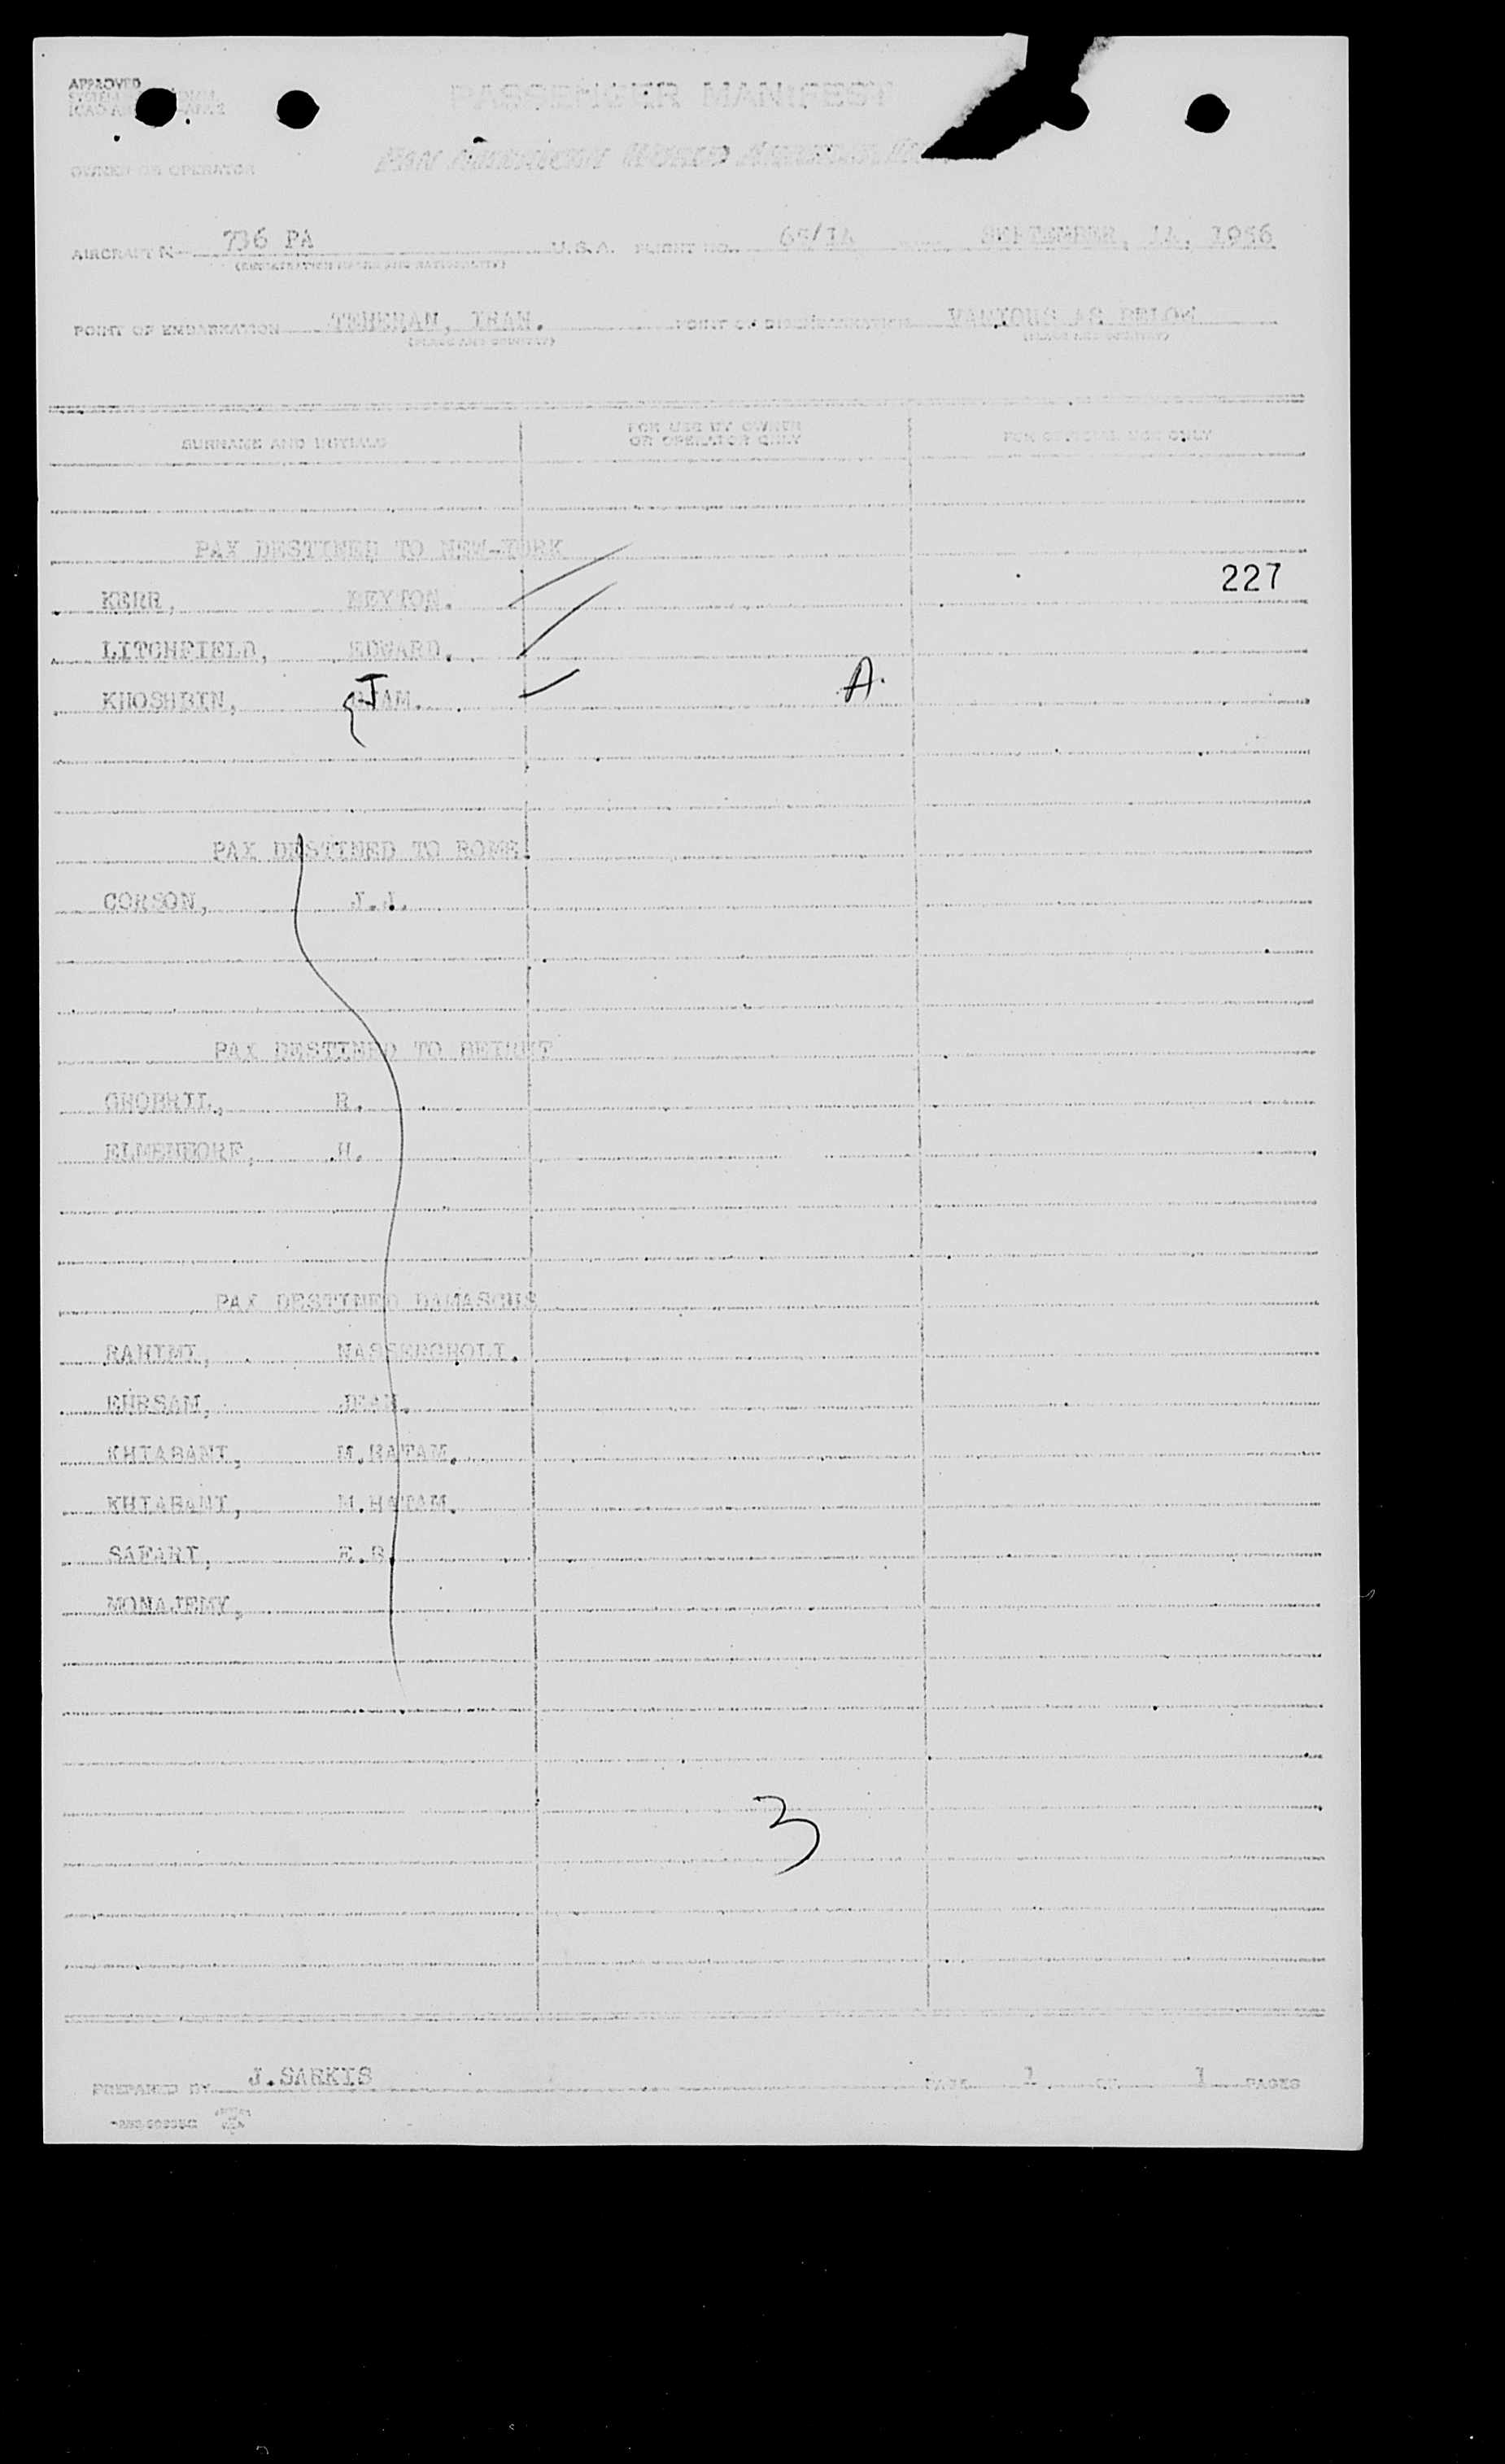 APPROVED
PASSENGER MANIFEST
PAN AMERICAN WORLD AIRWAYS,
OWNER OR OPERATOR
AIRCRAFT N 736 PA U.S.A. FLIGHT NO. 65/14 SEPTEMBER, 14, 1956
(REGISTRATION MARKS AND NATIONALITY)
POINT OF EMBARKATION TEHERAN, IRAN. POINT OF DISEMBARKATION VARIOUS AS BELOW
(PLACE AND COUNTRY) (PLACE AND COUNTRY)
SURNAME AND INITIALS FOR USE BY OWNER OR OPERATOR ONLY FOR OFFICIAL USE ONLY
PAX DESTINED TO NEW-YORK
227
KERR,
LITCHFIELD, EDWARD.
KHOSHBIN, J A.
PAX DESTINED TO ROME.
CORSON, J.J.
PAX DESTINED TO BEIRUT
GHOBRIL, R.
ELMENDORF, H.
PAX DESTINED DAMASCUS
RAHIMI, NASSERGHOLI.
EHRSAM, JEAN.
KHIABANI, M.HATAM.
KHIABANI, M.HATAM.
SAFARI,
MONAJEMY,
3
PREPARED BY J.SARKIS PAGE 1 OF 1 PAGES